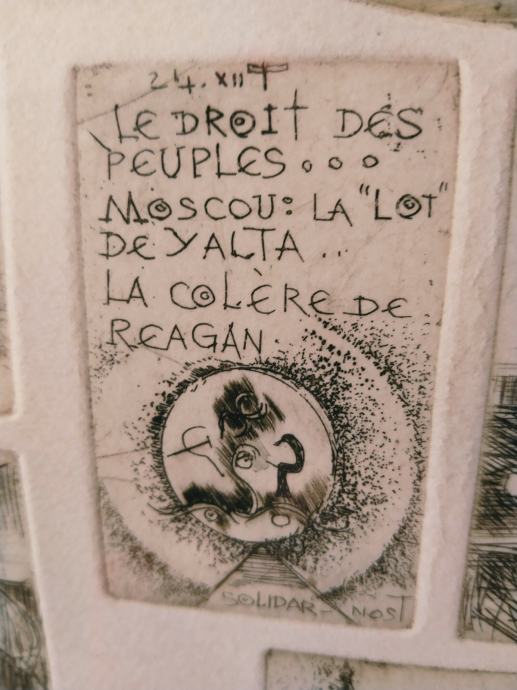 24.XII
LE DROIT DES
PEUPLES...
MOSCOU: LA "LOT"
DE YALTA...
LA COLÈRE DE
REAGAN.
SOLIDAR-NOST